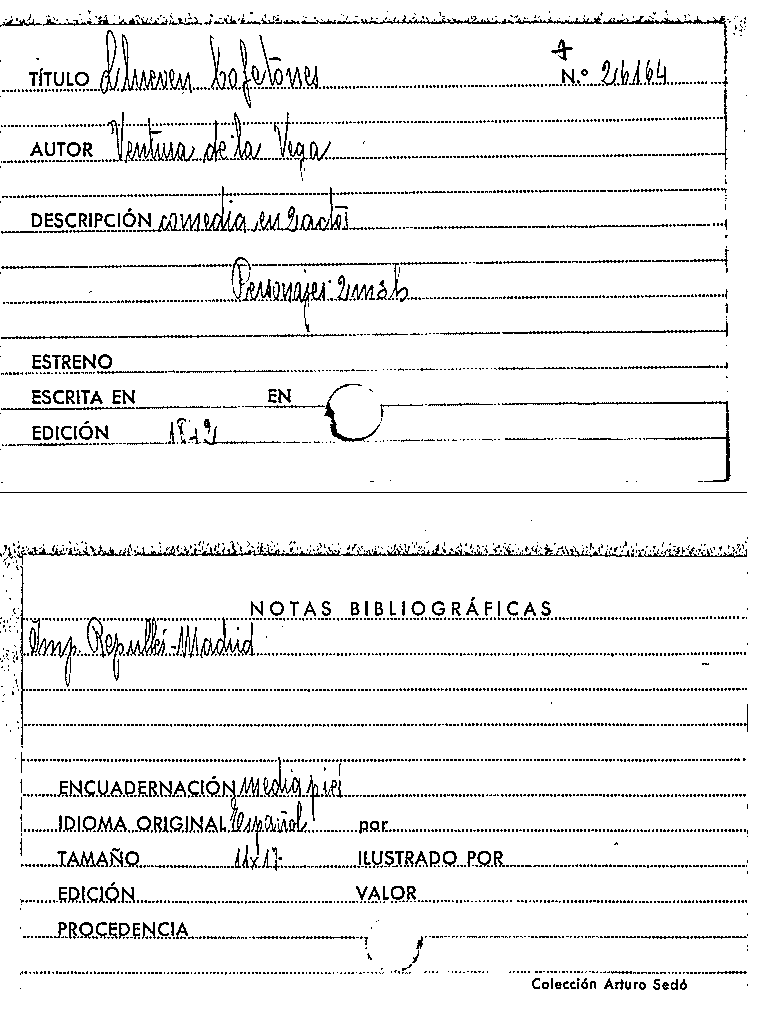 TÍTULO Llueven bofetones N.º 26164
AUTOR Ventura de la Vega
DESCRIPCIÓN comedia en 2 actos
Personajes: 2 m 3 h
ESTRENO
ESCRITA EN EN
EDICIÓN
NOTAS BIBLIOGRÁFICAS
Imp. Repullés-Madrid
ENCUADERNACIÓN media piel
IDIOMA ORIGINAL Español por
TAMAÑO 11x17 ILUSTRADO POR
EDICIÓN VALOR
PROCEDENCIA
Colección Arturo Sedó